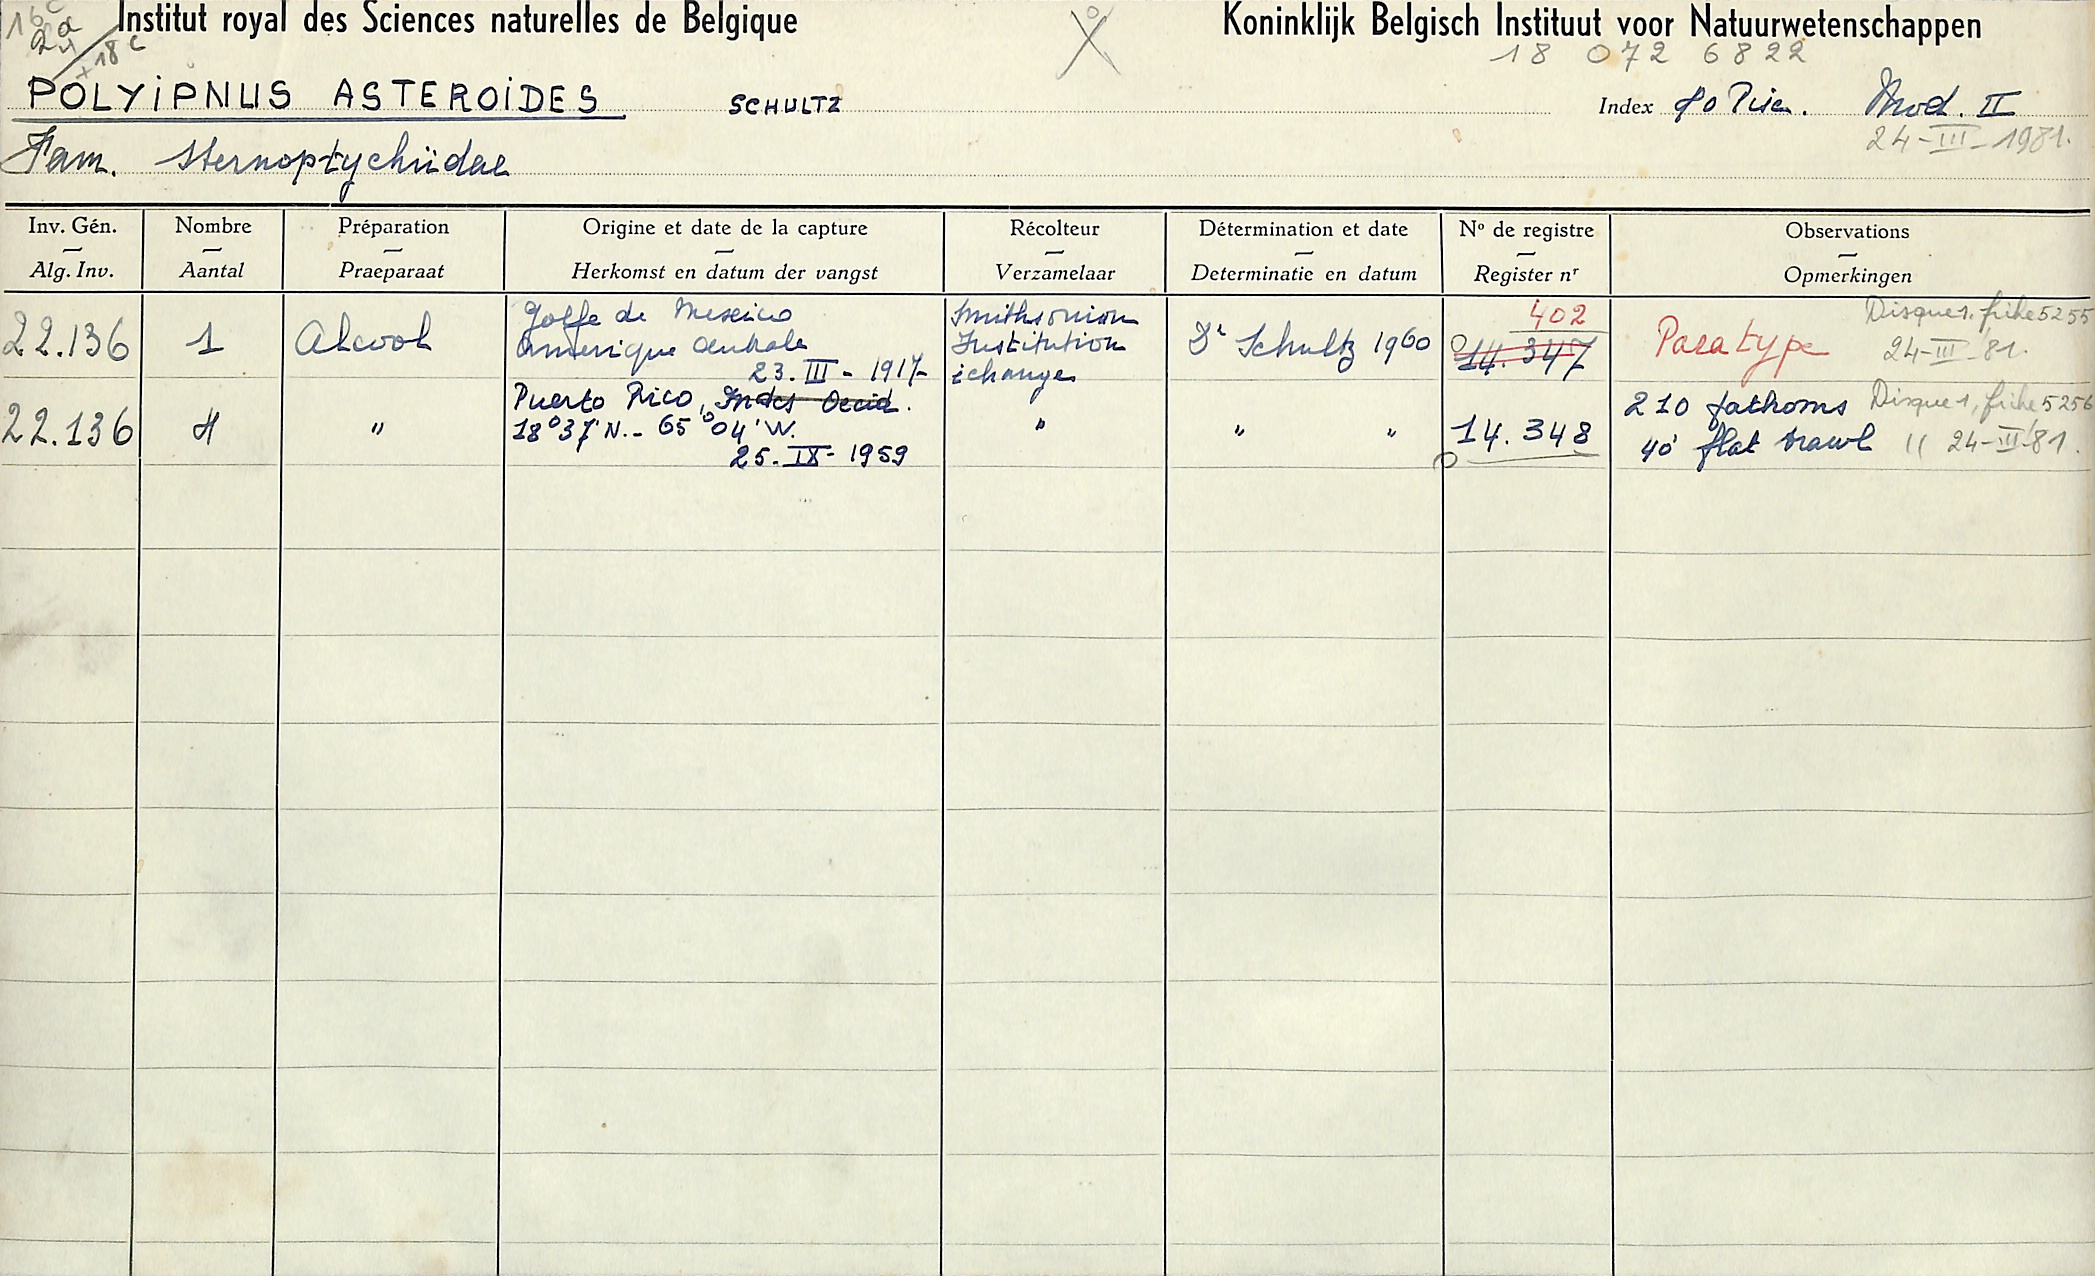 16c
2a
+18c
Institut royal des Sciences naturelles de Belgique
Koninklijk Belgisch Instituut voor Natuurwetenschappen
18 072 6822
POLYIPNUS ASTEROIDES SCHULTZ Index Mod. II
24-III-1981.
Fam. Sternoptychiidae
Inv. Gén. Nombre Préparation Origine et date de la capture Récolteur Détermination et date No de registre Observations
Alg. Inv. Aantal Praeparaat Herkomst en datum der vangst Verzamelaar Determinatie en datum Register nr Opmerkingen
22.136 1 Alcool
Golfe de Mexico
Amérique Centrale
23.III-1917-
Smithsonian
Institution
échange
Dr Schultz 1960
402
14.347
Paratype
Disque 1, fiche 5255
24-III-81.
22.136 4 "
Puerto Rico, Indes Occid.
18°37'N.- 65°04'W.
25.IX-1959
"
" "
14.348
210 fathoms Disque 1, fiche 5256
40' flat trawl " 24-III-81.